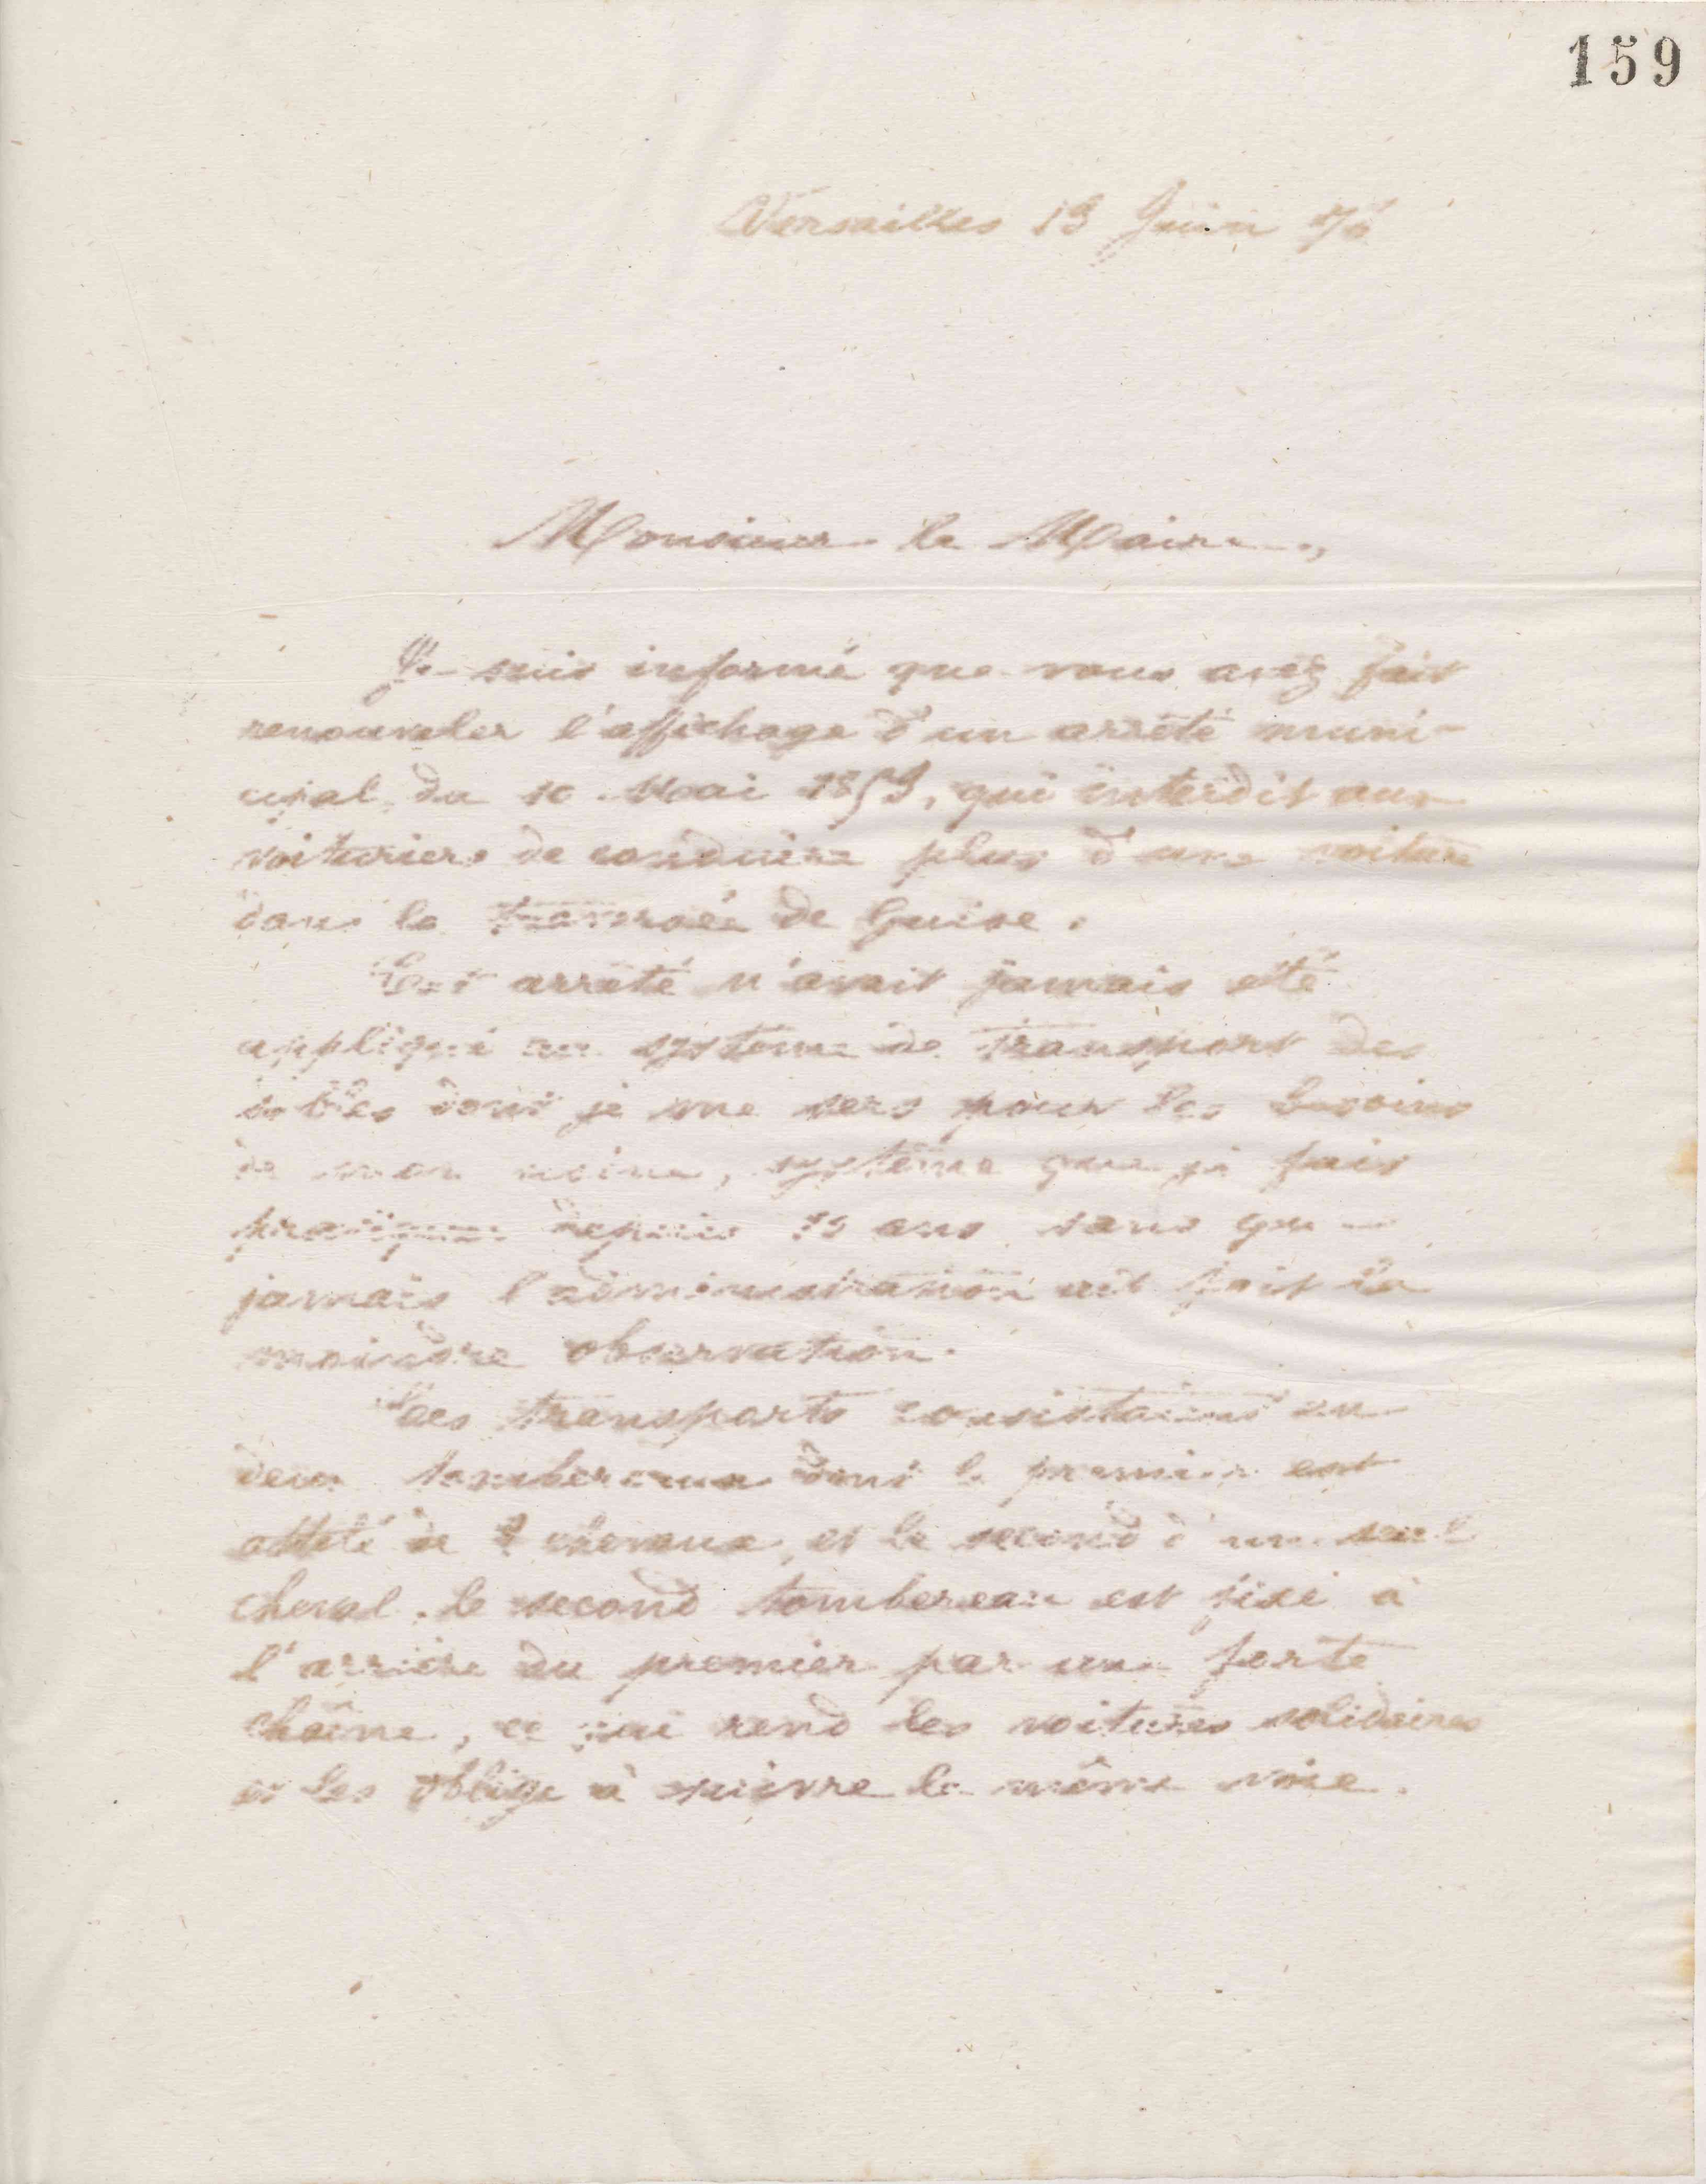 159
Versailles 13 Juin 76
Monsieur le Maire,
Je suis informé que vous avez fait
renouveler l'affichage d'un arrêté muni-
cipal du 10 Mai 1853, qui interdit aux
voituriers de conduire plus d'une voiture
dans la traversée de Guise.
Cet arrêté n'avait jamais été
appliqué au système de transport des
sables dont je me sers pour les besoins
de mon usine, système que je fais
pratiquer depuis 15 ans sans que
jamais l'administration ait fait la
moindre observation.
Ces transports consistaient en
deux tombereaux dont le premier est
attelé de 2 chevaux, et le second d'un seul
cheval. le second tombereau est fixé à
l'arrière du premier par une forte
chaîne, ce qui rend les voitures solidaires
et les oblige à suivre la même voie.